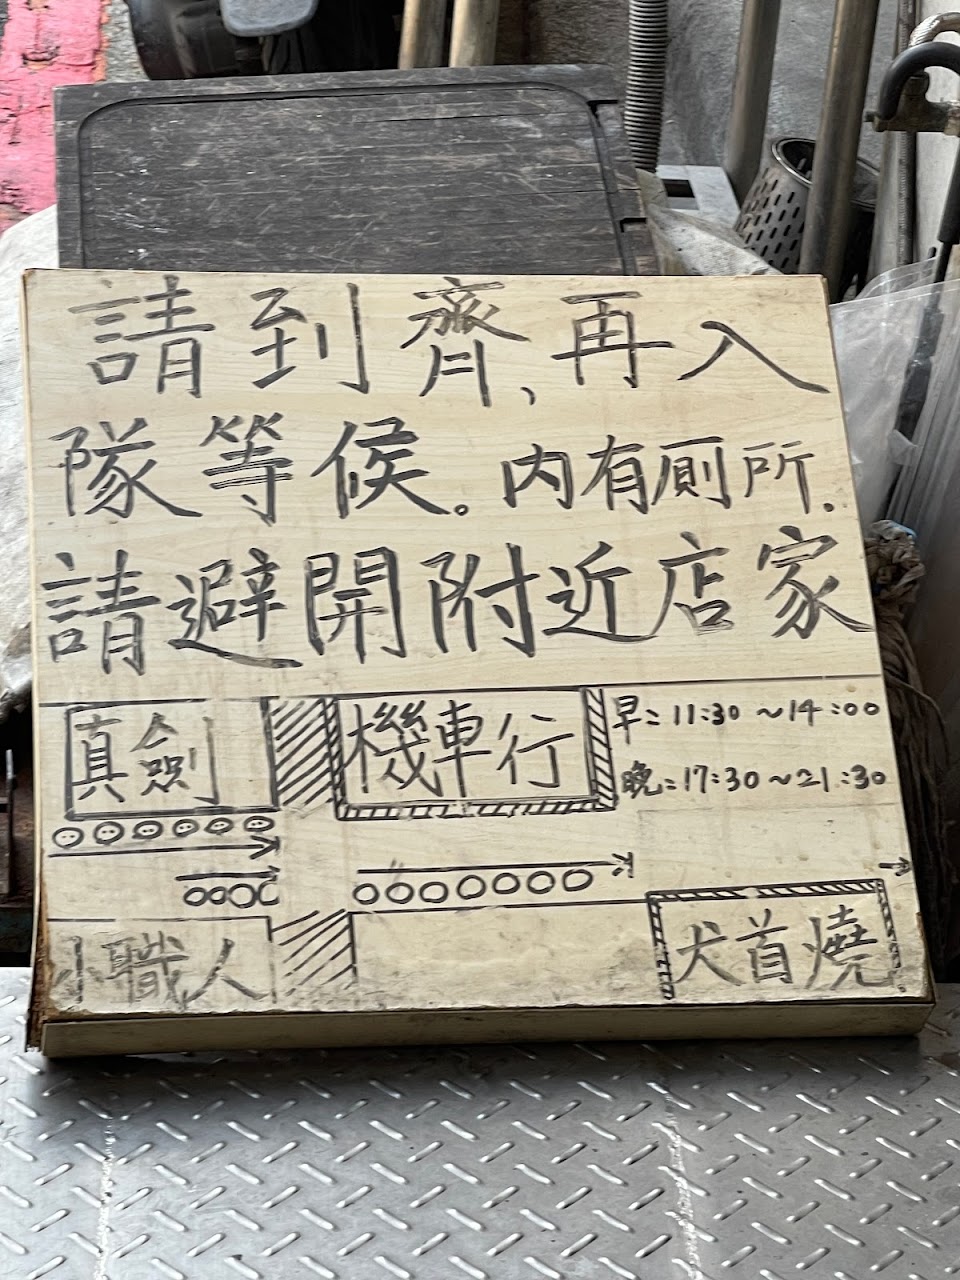 請到齊、再入
隊等候。內有廁所.
請避開附近店家
真劍
機車行
早:11:30~14:00
晚:17:30~21:30
小職人
犬首燒